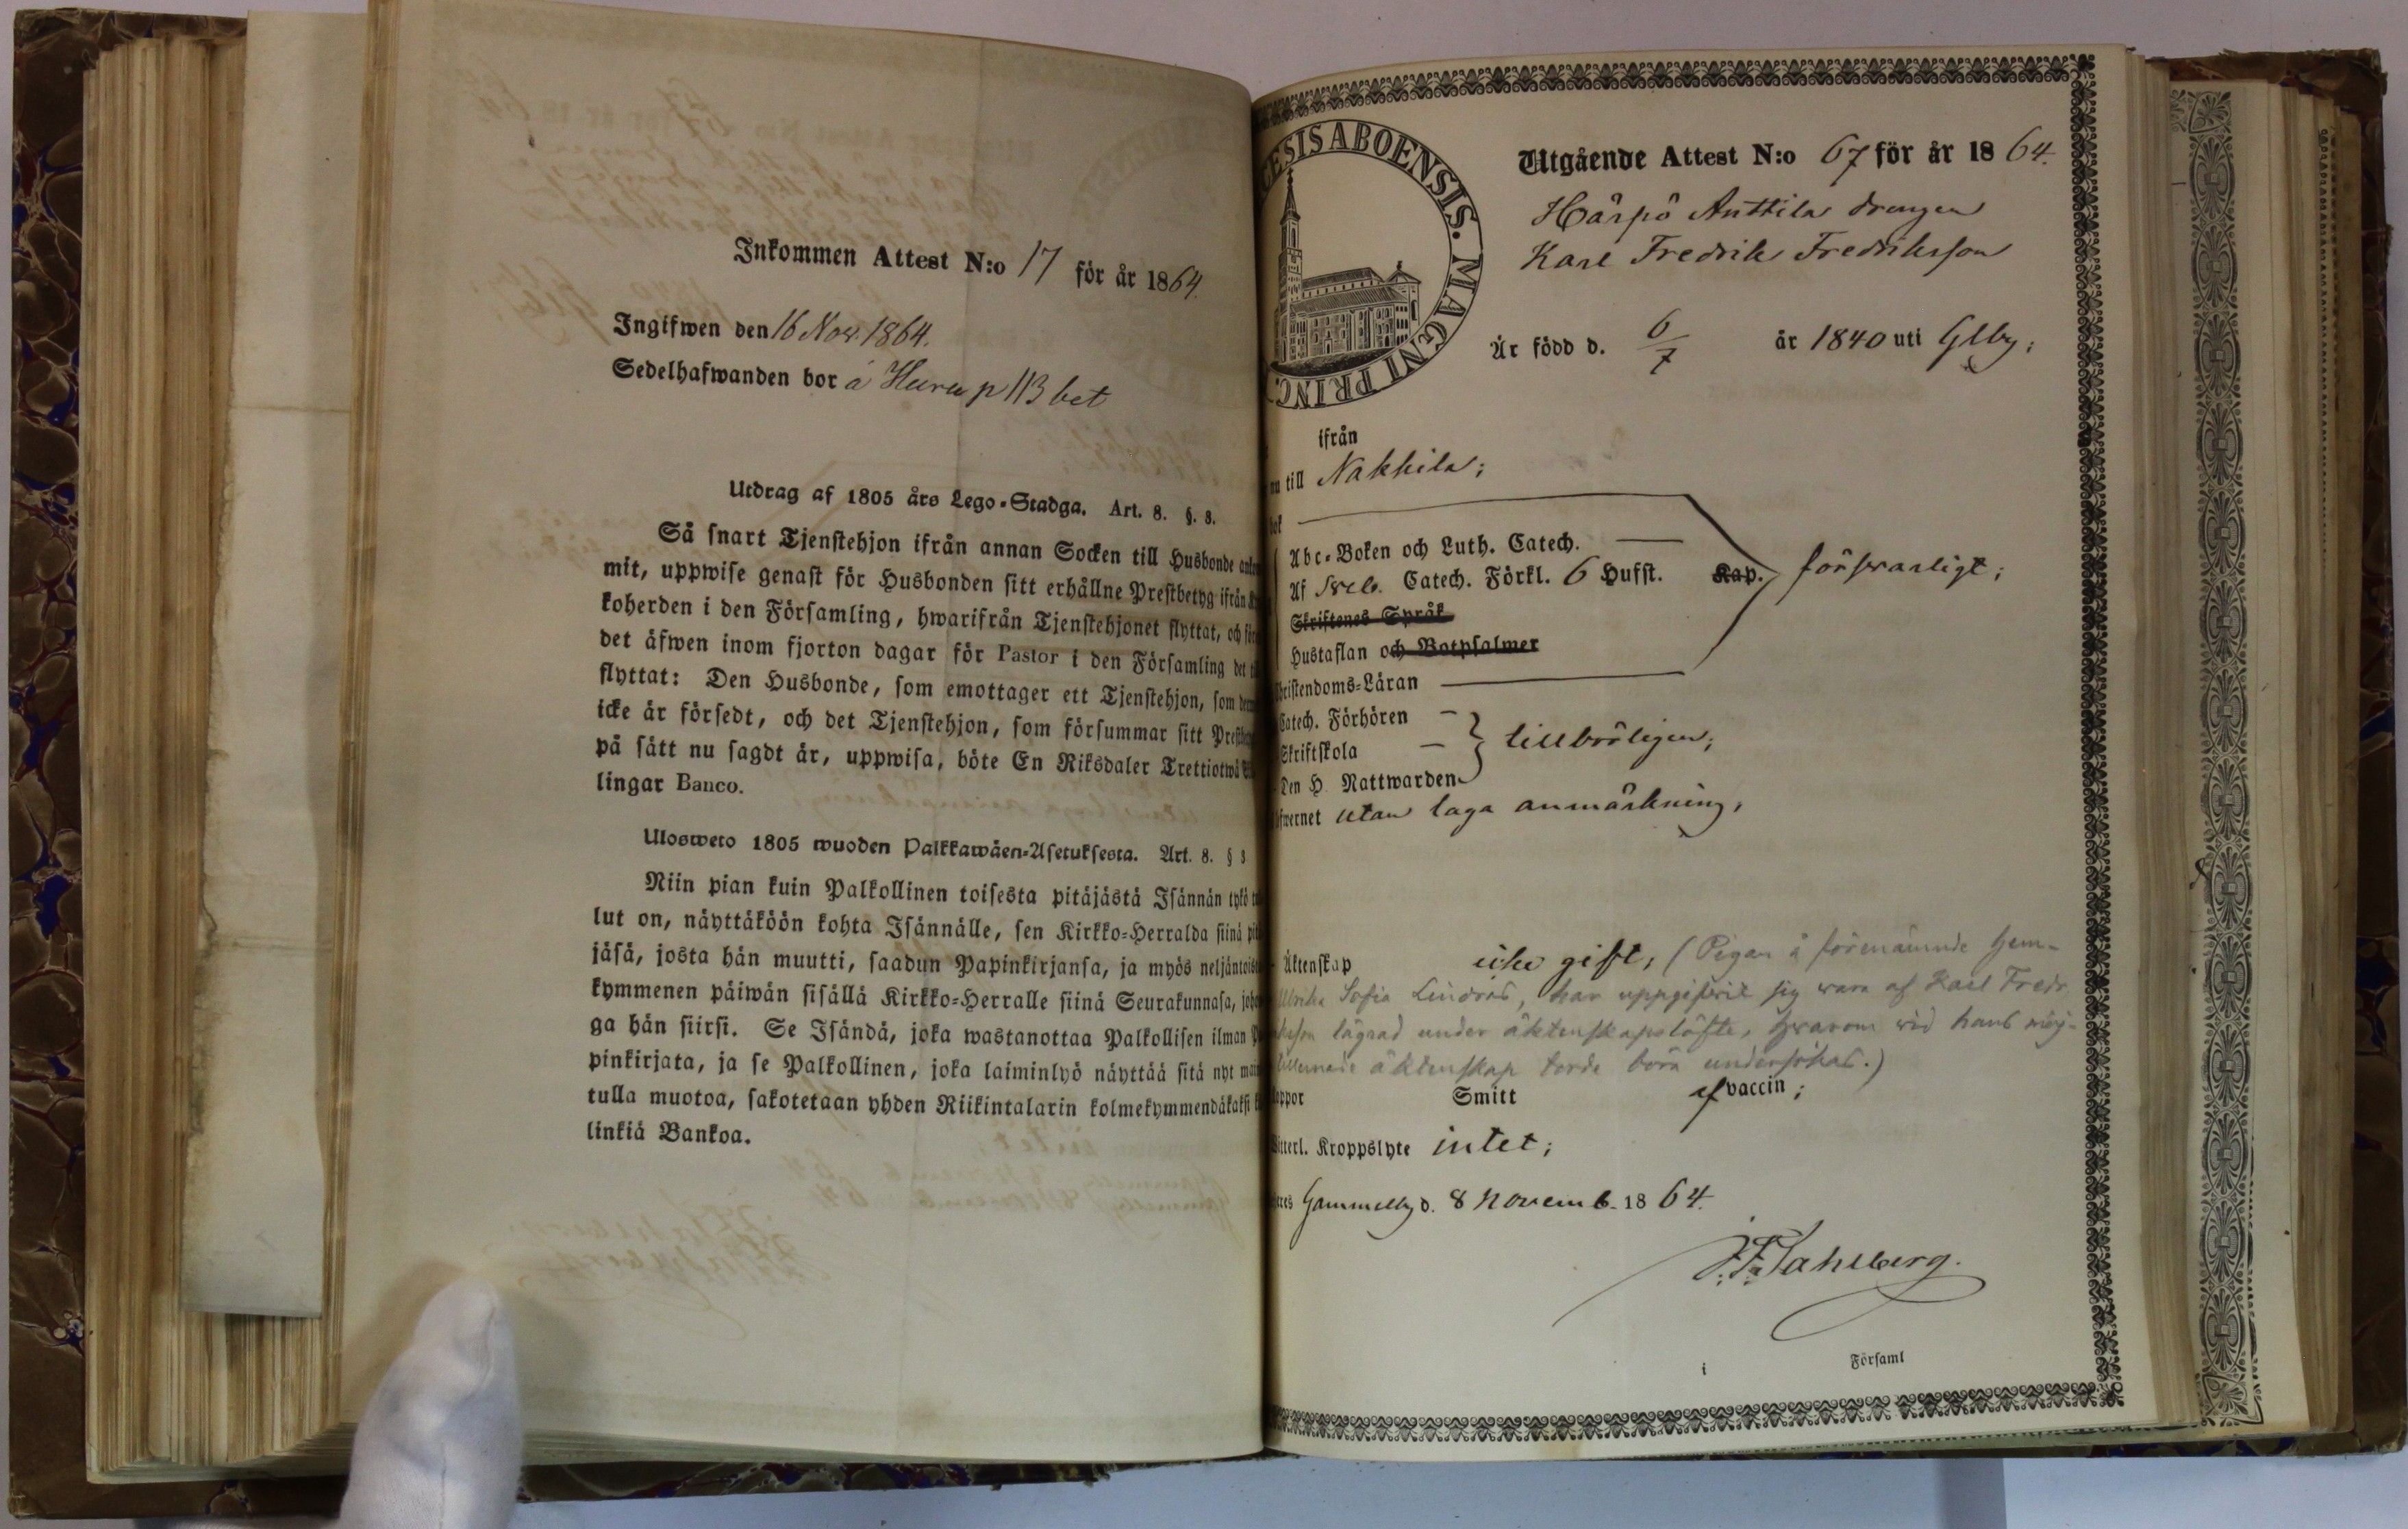 Inkommen Attest N:o 17 för år 1864.
Ingifwen den 16 Nov. 1864.
Sedelhafwanden bor å Huru p 113 bet
Utdrag af 1805 års Lego-Stadga. Art. 8. §. 8.
Så snart Tjenstehjon ifrån annan Socken till Husbonde
mit, uppwise genast för Husbonden sitt erhållne Prestbetyg ifrån
koherden i den Församling, hwarifrån Tjenstehjonet flyttat, och
det äfwen inom fjorton dagar för Pastor i den Församling det
flyttat: Den Husbonde, som emottager ett Tjenstehjon, som
icke är försedt, och det Tjenstehjon, som försummar sitt
på sätt nu sagdt är, uppwisa, böte En Riksdaler Trettiotwå
lingar Banco.
Ulosweto 1805 wuoden Palkkawäen-Asetuksesta. Art. 8. § 8
Niin pian kuin Palkollinen toisesta pitäjästä Isännän tykö
lut on, näyttäköön kohta Isännälle, sen Kirkko-Herralda siinä
jäsä, josta hän muutti, saadun Papinkirjansa, ja myös
kymmenen päiwän sisällä Kirkko-Herralle siinä Seurakunnasa,
ga hän siirsi. Se Isändä, joka wastanottaa Palkollisen ilman
pinkirjata, ja se Palkollinen, joka laiminlyö näyttää sitä nyt
tulla muotoa, sakotetaan yhden Riikintalarin kolmekymmendäkaksi
linkiä Bankoa.
ESIS ABOENSIS. MAGNI PRINC.
Utgående Attest N:o 67 för år 1864.
Härpö Anttila drengen
Karl Fredrik Fredriksson
Är född d. 6/7 år 1840 uti Glby;
ifrån
till Nakkila;
Abc-Boken och Luth. Catech.
Af Sveb. Catech. Förkl. 6 Hufst. Kap. försvarligt;
Skriftenes Språk
Hustaflan och Botpsalmer
Christendoms-Läran
Catech. Förhören
Skriftskola tillbörligen;
Den H. Nattwarden
utan laga anmärkning,
Äktenskap icke gift, (Pigan å förenämnde hem-
Ulrika Sofia Lindros, har uppgifvit sig vara af Karl Fredr.
lägrad under äktenskapslöfte, hvarom vid hans möj-
äktenskap torde böra undersökas.)
Koppor Smitt af vaccin;
Kroppslyte intet;
Gammelby d. 8 Novemb. 1864.
J. F. Fahlberg.
i Församl